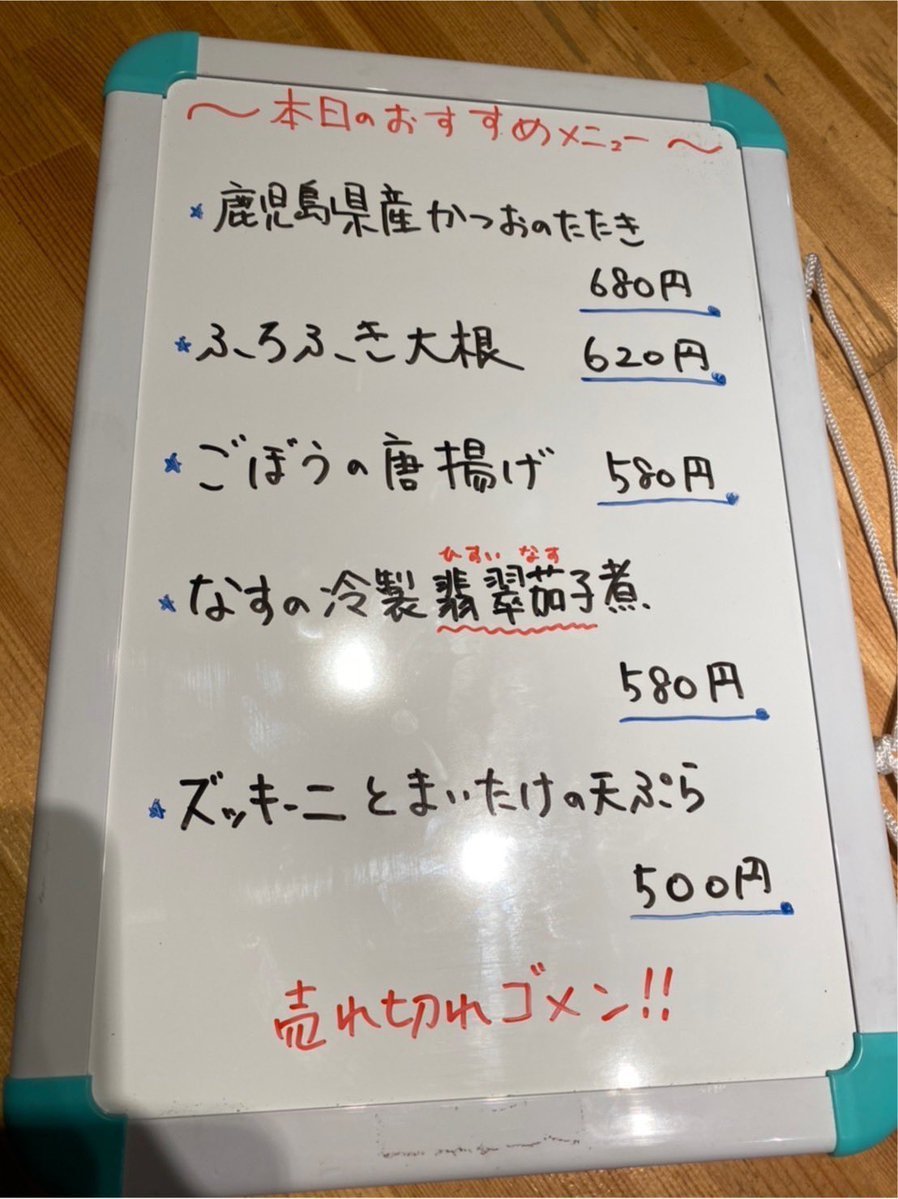 〜本日のおすすめメニュー〜
★鹿児島県産かつおのたたき
680円
★ふろふき大根 620円
★ごぼうの唐揚げ 580円
ひすい なす
★なすの冷製翡翠茄子煮
580円
★ズッキーニとまいたけの天ぷら
500円
売れ切れゴメン!!